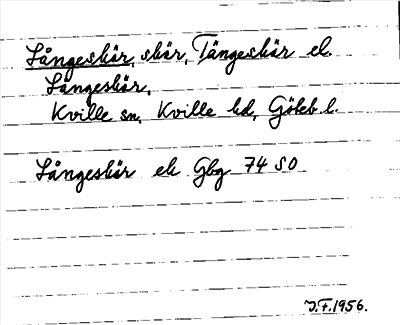 Långeskär, skär, Tångeskär ek.
Langeskär,
Kville sn, Kville hd, Göteb. l.
Långeskär ek Gbg 74 SO
J.F.1956.